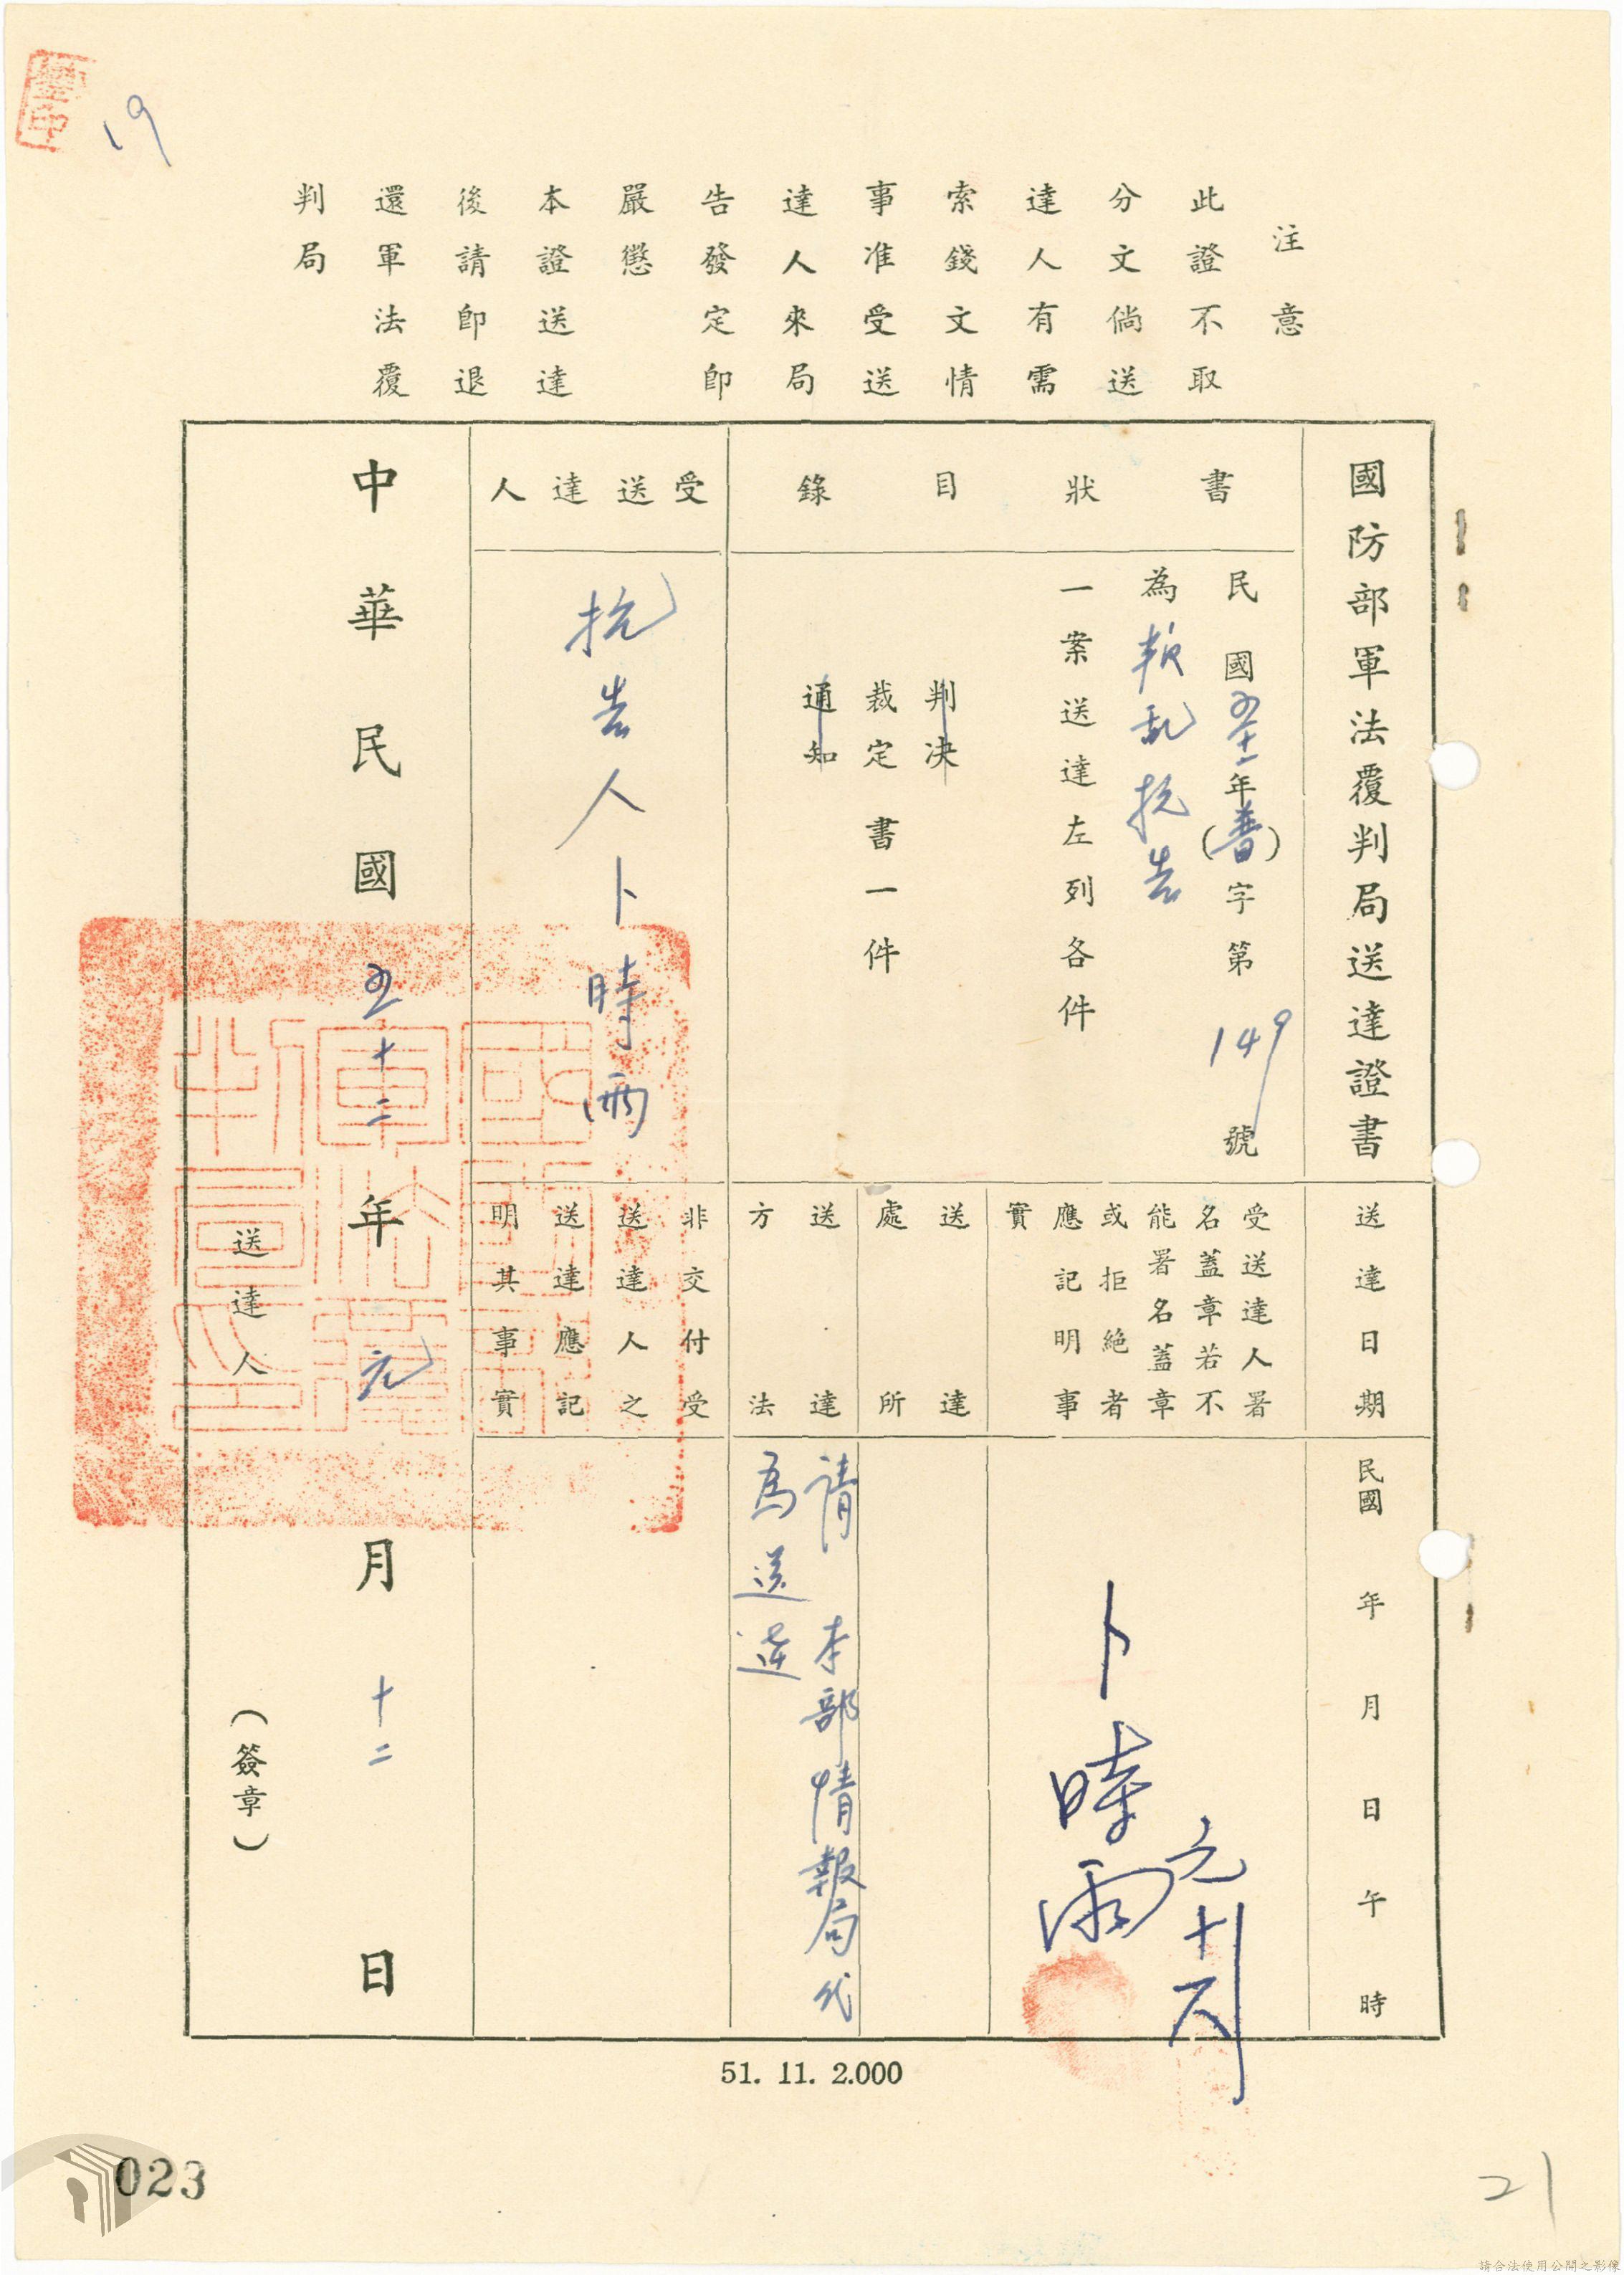 19
注意
此證不取
分文倘送
達人有需
索錢文情
事准受送
達人來局
告發定即
嚴懲
本證送達
後請即退
還軍法覆
判局
國防部軍法覆判局送達證書
書狀目錄
民國五十一年(普)字第149號
為叛乱抗告
一案送達左列各件
判決
裁定書一件
通知
受送達人
抗告人卜時雨
送達日期
民國 年 月 日 午 時
受送達人署
名蓋章若不
能署名蓋章
或拒絕者
應記明事
實
元十六
卜時雨
送達
處所
送達
方法
請本部情報局代
為送達
非交付受
送達人之
送達應記
明其事實
中華民國五十二年元月十二日
送達人(簽章)
51. 11. 2.000
023
21
請合法使用公開之影像